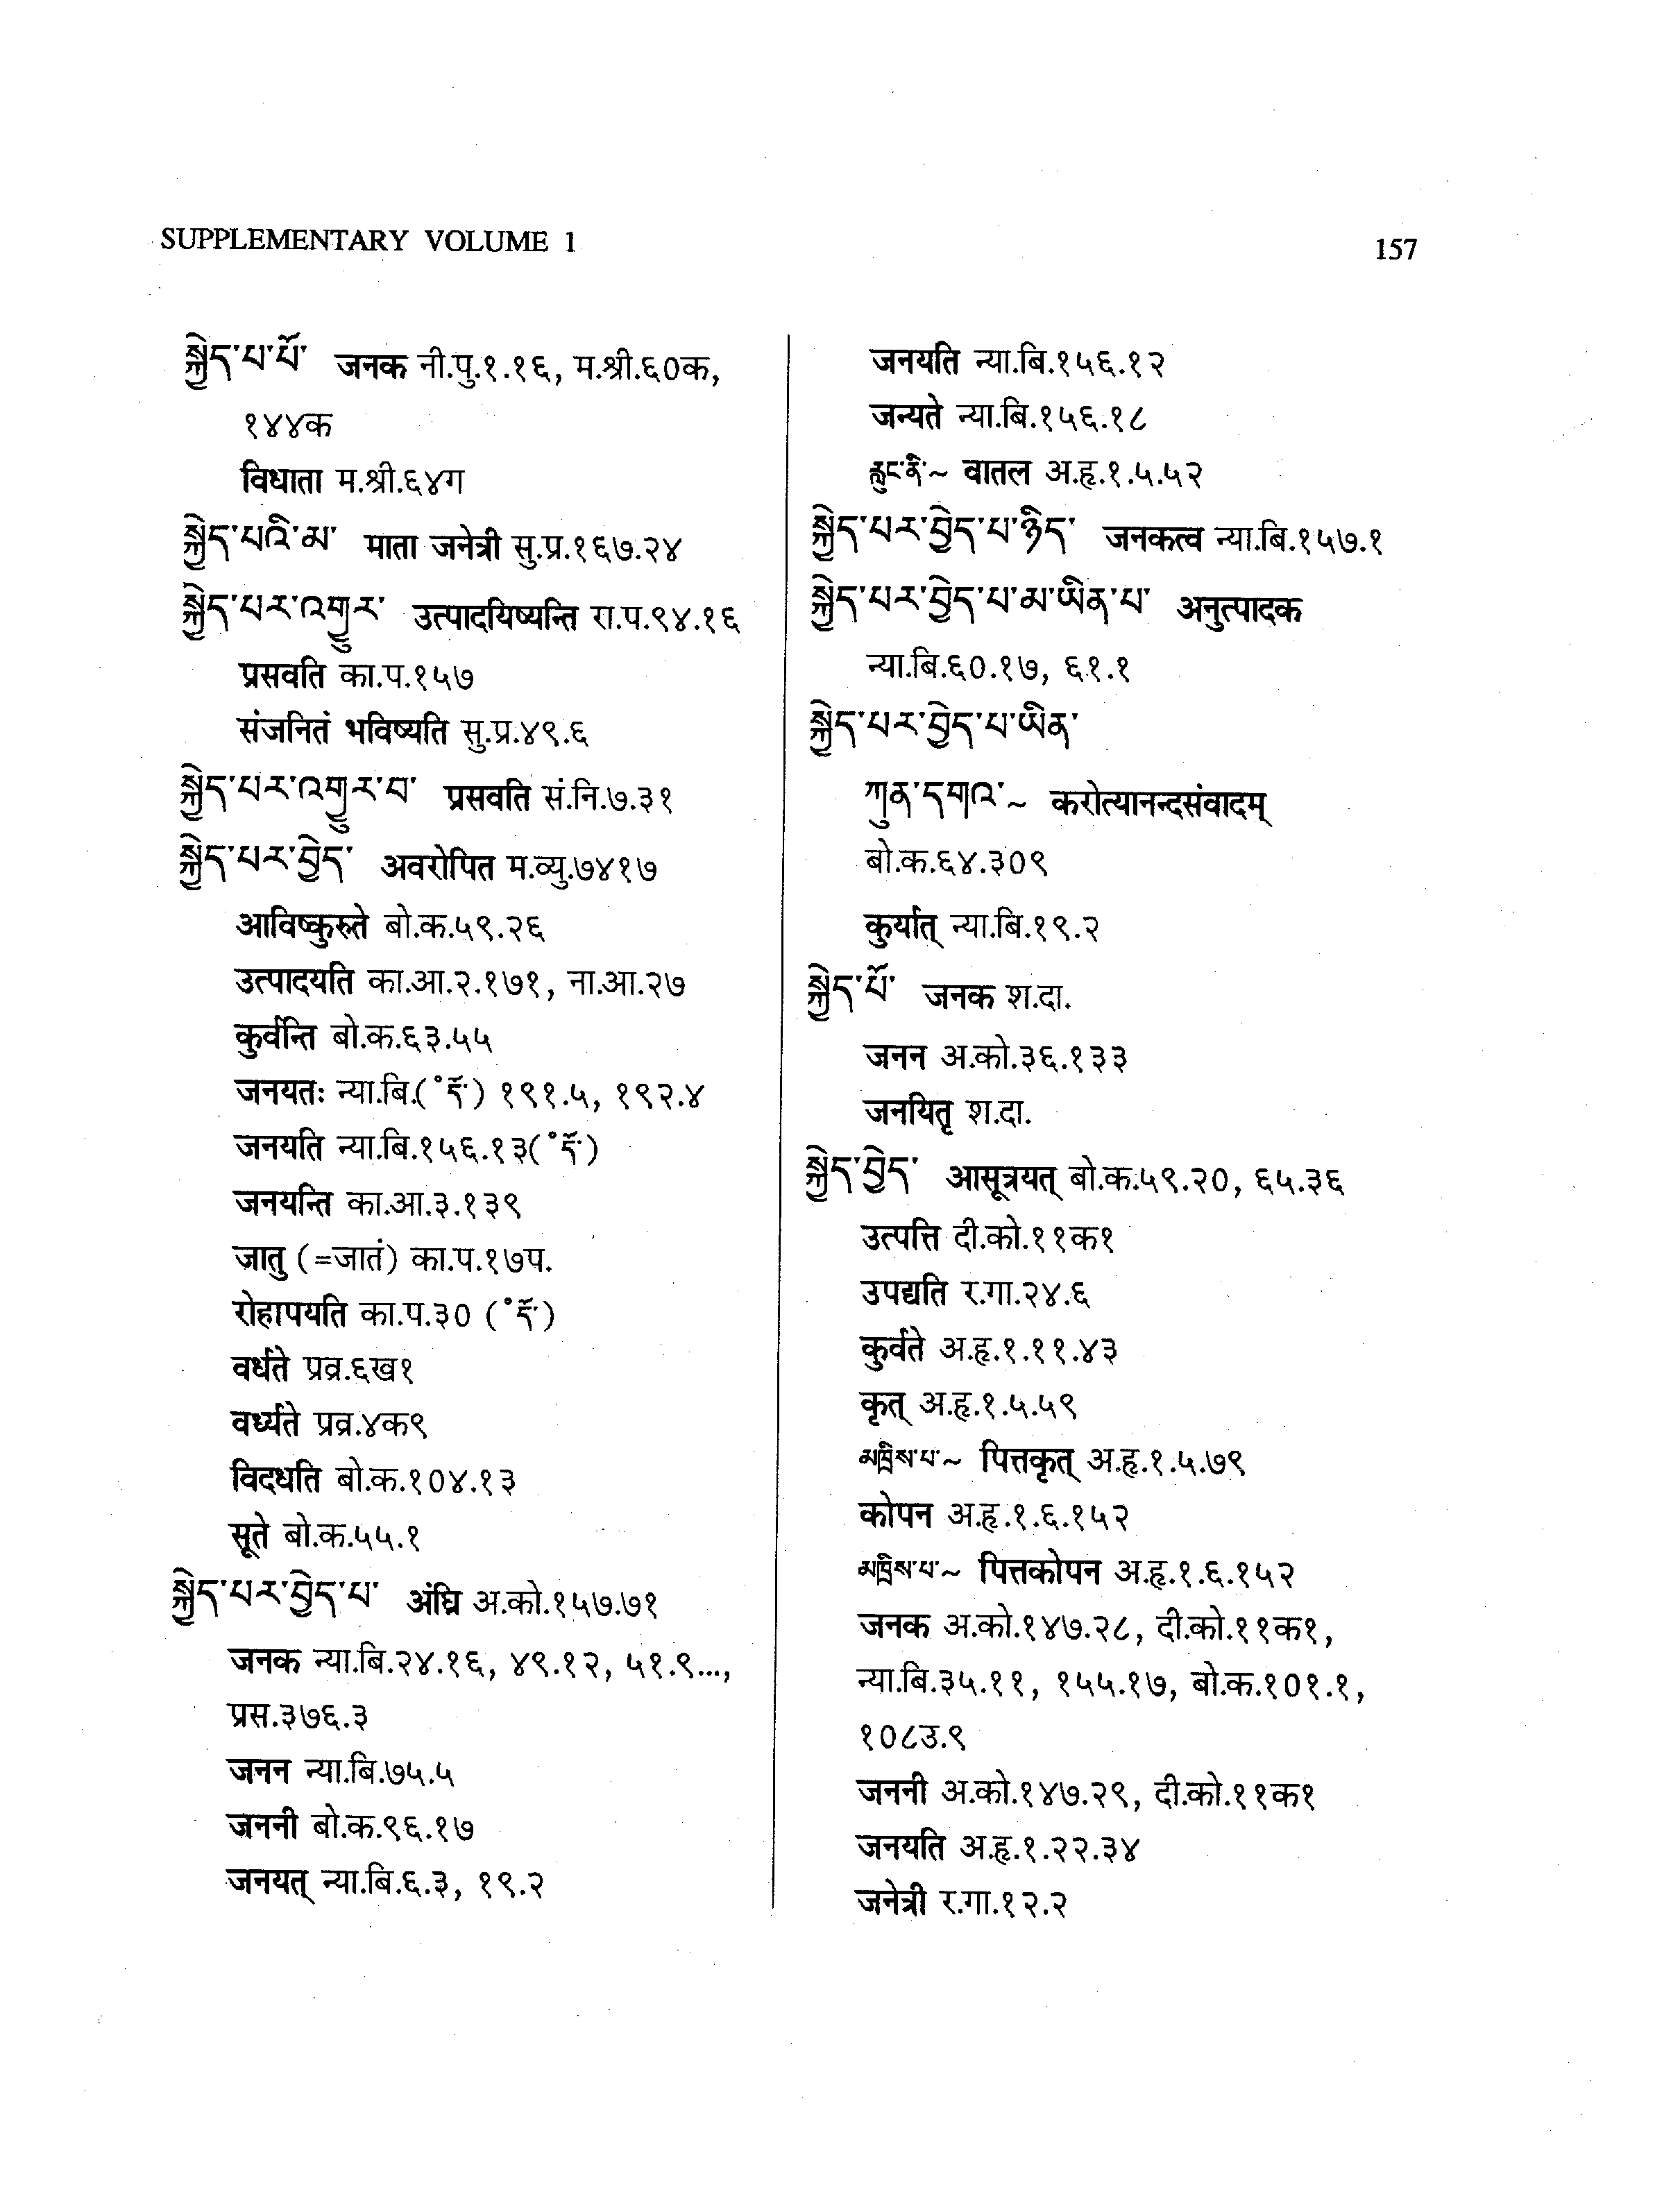 SUPPLEMENTARY VOLUME 1
157
སྐྱེད་པ་པོ་ जनक नी.पु.१.१६, म.श्री.६०क,
१४४क
विधाता म.श्री.६४ग
སྐྱེད་པའི་མ་ माता जनेत्री सु.प्र.१६७.२४
སྐྱེད་པར་འགྱུར་ उत्पादयिष्यन्ति रा.प.९४.१६
प्रसवति का.प.१५७
संजनितं भविष्यति सु.प्र.४९.६
སྐྱེད་པར་འགྱུར་བ་ प्रसवति सं.नि.७.३१
སྐྱེད་པར་བྱེད་ अवरोपित म.व्यु.७४१७
आविष्कुरुते बो.क.५९.२६
उत्पादयति का.आ.२.१७१, ना.आ.२७
कुर्वन्ति बो.क.६३.५५
जनयतः न्या.बि.(˚དོ་) १९१.५, १९२.४
जनयति न्या.बि.१५६.१३(˚དོ་)
जनयन्ति का.आ.३.१३९
जातु (=जातं) का.प.१७प.
रोहापयति का.प.३० (˚དོ་)
वर्धते प्रव्र.६ख१
वर्ध्यते प्रव्र.४क९
विदधति बो.क.१०४.१३
सूते बो.क.५५.१
སྐྱེད་པར་བྱེད་པ་ अंघ्रि अ.को.१५७.७१
जनक न्या.बि.२४.१६, ४९.१२, ५१.९...,
प्रस.३७६.३
जनन न्या.बि.७५.५
जननी बो.क.९६.१७
जनयत् न्या.बि.६.३, १९.२
जनयति न्या.बि.१५६.१२
जन्यते न्या.बि.१५६.१८
རླུང་ནི་~ वातल अ.हृ.१.५.५२
སྐྱེད་པར་བྱེད་པ་ཉིད་ जनकत्व न्या.बि.१५७.१
སྐྱེད་པར་བྱེད་པ་མ་ཡིན་པ་ अनुत्पादक
न्या.बि.६०.१७, ६१.१
སྐྱེད་པར་བྱེད་པ་ཡིན་
ཀུན་དགའ་~ करोत्यानन्दसंवादम्
बो.क.६४.३०९
कुर्यात् न्या.बि.१९.२
སྐྱེད་པོ་ जनक श.दा.
जनन अ.को.३६.१३३
जनयितृ श.दा.
སྐྱེད་བྱེད་ आसूत्रयत् बो.क.५९.२०, ६५.३६
उत्पत्ति दी.को.११क१
उपद्यति र.गा.२४.६
कुर्वते अ.हृ.१.११.४३
कृत् अ.हृ.१.५.५९
མཁྲིས་པ་~ पित्तकृत् अ.हृ.१.५.७९
कोपन अ.हृ.१.६.१५२
མཁྲིས་པ་~ पित्तकोपन अ.हृ.१.६.१५२
जनक अ.को.१४७.२८, दी.को.११क१,
न्या.बि.३५.११, १५५.१७, बो.क.१०१.१,
१०८उ.९
जननी अ.को.१४७.२९, दी.को.११क१
जनयति अ.हृ.१.२२.३४
जनेत्री र.गा.१२.२